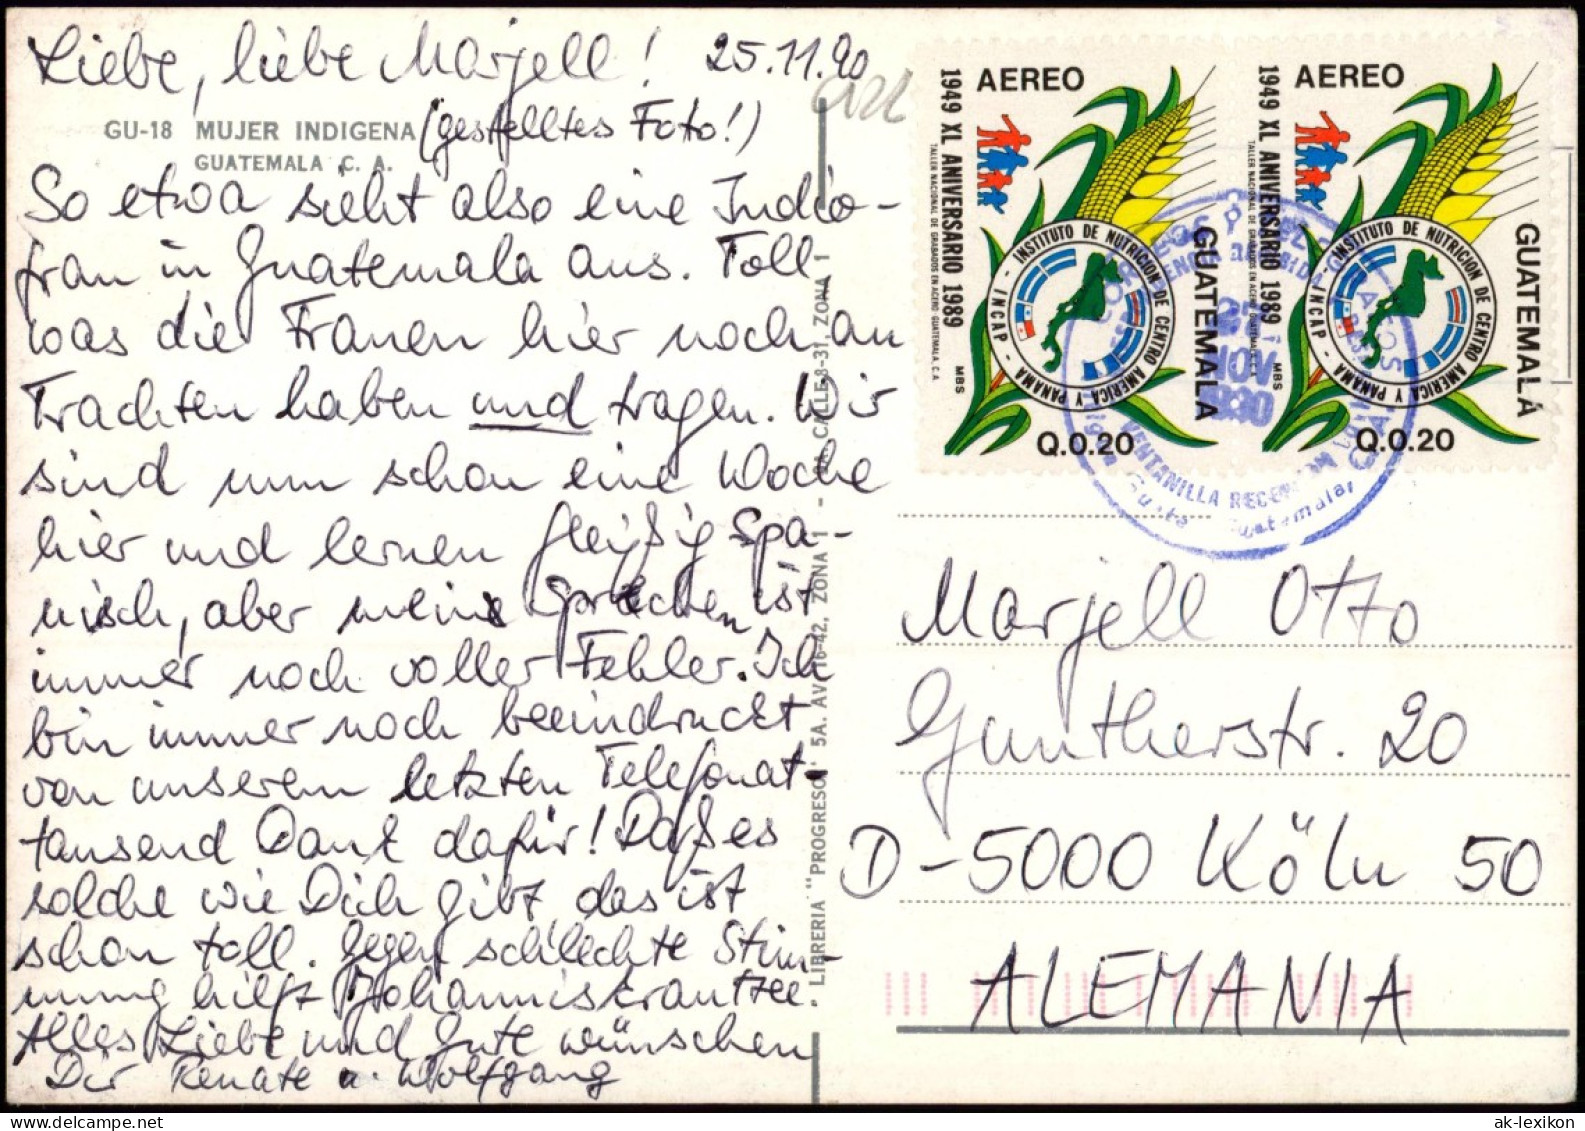 Liebe, liebe Marjell! 25.11.90
(gestelltes Foto!)
GU-18 MUJER INDIGENA
GUATEMALA C. A.
So etwa sieht also eine Indio-
frau in Guatemala aus. Toll,
was die Frauen hier noch an
Trachten haben und tragen. Wir
sind nun schon eine Woche
hier und lernen fleißig Spa-
nisch, aber mein Sprechen ist
immer noch voller Fehler. Ich
bin immer noch beeindruckt
von unserem letzten Telefonat -
tausend Dank dafür! Daß es
solche wie Dich gibt, das ist
schon toll. Gegen schlechte Stim-
mung hilft Johanniskrauttee.
Alles Liebe und Gute wünschen
Dir Renate u. Wolfgang
LIBRERIA "PROGRESO" 5A. AV. 16-42, ZONA 1 - CALLE 8-31, ZONA 1
AEREO
1949 XL ANIVERSARIO 1989
TALLER NACIONAL DE GRABADOS EN ACERO GUATEMALA, C.A.
MBS
INSTITUTO DE NUTRICION DE CENTRO AMERICA Y PANAMA
- INCAP -
GUATEMALA
Q.0.20
AEREO
1949 XL ANIVERSARIO 1989
TALLER NACIONAL DE GRABADOS EN ACERO GUATEMALA, C.A.
MBS
INSTITUTO DE NUTRICION DE CENTRO AMERICA Y PANAMA
- INCAP -
GUATEMALA
Q.0.20
NOV
1990
VENTANILLA
Guatemala,
Marjell Otto
Guntherstr. 20
D-5000 Köln 50
ALEMANIA
ak-lexikon